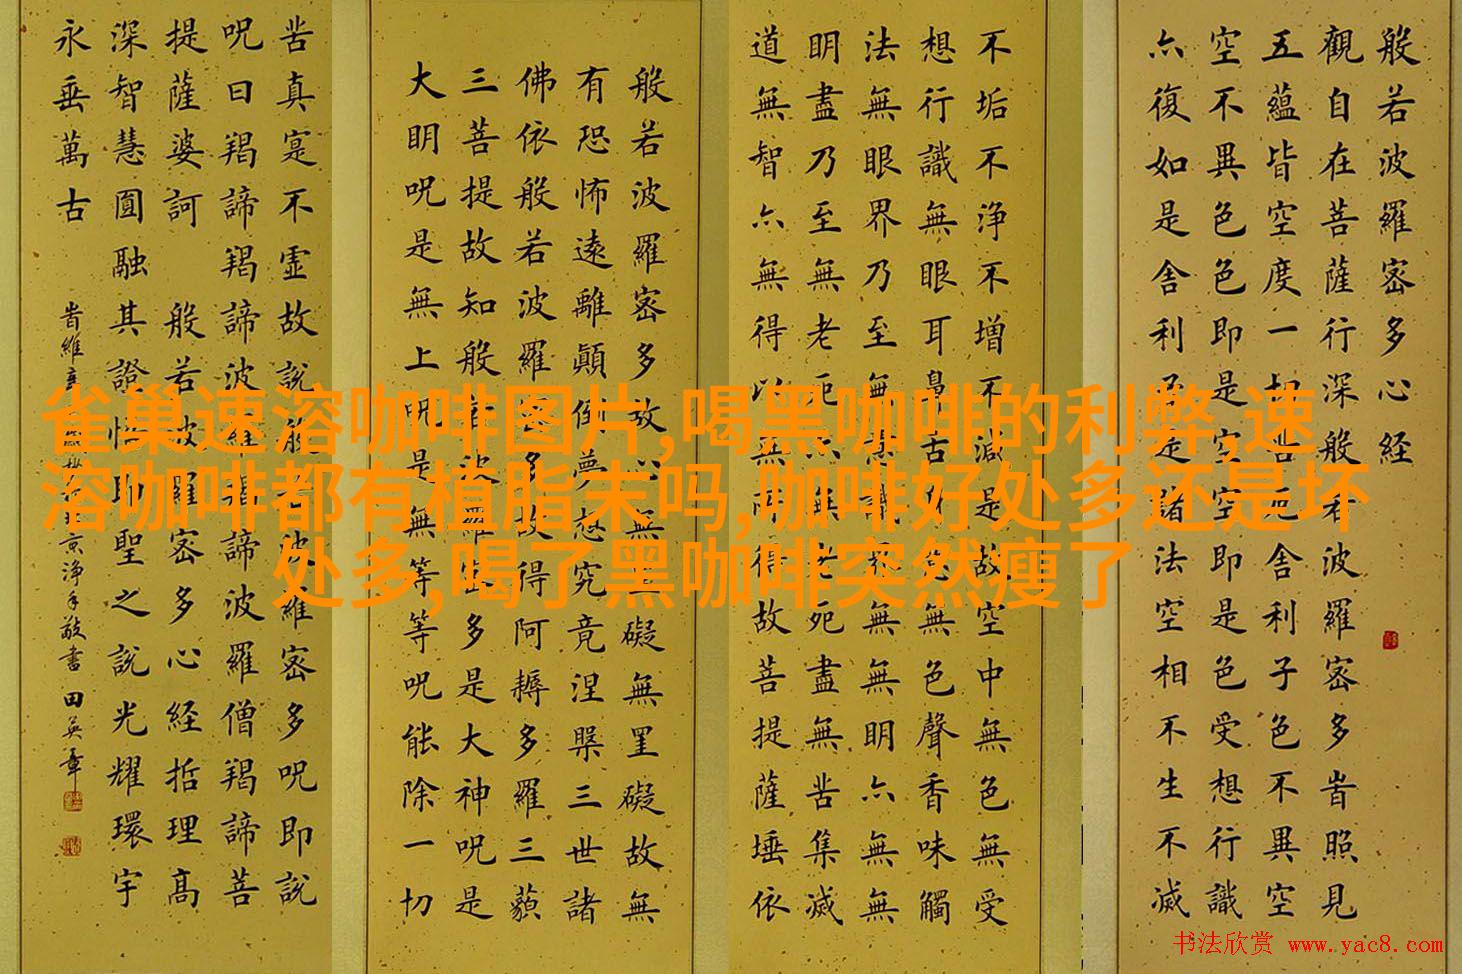 般若波羅密多心経
觀自在菩薩行深般若波羅密多旹照見
五蘊皆空度一切苦厄舍利子色不異空
空不異色色即是空空即是色受想行識
亦復如是舍利子是諸法空相不生不滅
不垢不浄不增不減是故空中無色無受
想行識無眼耳鼻舌身意無色聲香味觸
法無眼界乃至無意識界無無明亦無無
明盡乃至無老死亦無老死盡無苦集滅
道無智亦無得以無所得故菩提薩埵依
般若波羅密多故心無罣礙無罣礙故無
有恐怖遠離顛倒夢想究竟涅槃三世諸
佛依般若波羅密多故得阿耨多羅三藐
三菩提故知般若波羅密多是大神呪是
大明呪是無上呪是無等等呪能除一切
苦真寔不虛故說般若波羅密多呪即說
呪曰羯諦羯諦波羅羯諦波羅僧羯諦菩
提薩婆訶 般若波羅密多心経括理高
深智慧圓融其證悟即聖之説光耀環宇
永垂萬古 旹維 京浄手敬書 田英章
雀巢速溶咖啡图片,喝黑咖啡的利弊,速
溶咖啡都有植脂末吗,咖啡好处多还是坏
处多,喝了黑咖啡突然瘦了
书法欣赏 www.yac8.com